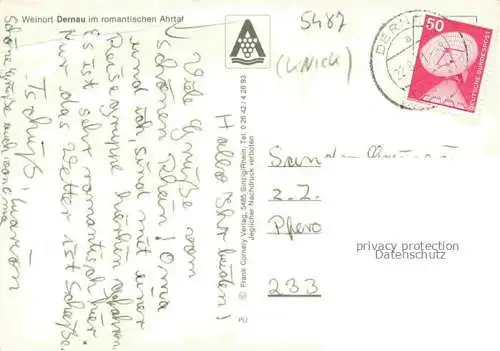 Weinort Dernau im romantischen Ahrtal
Hallo Ihr beiden!
Viele Grüße vom
schönen Rhein! Oma
und ich sind mit einer
Reisegruppe hierhin gefahren
Es ist sehr romantisch hier
Nur das Wetter ist Scheiße.
Tschüß,
Schöne Grüße auch von oma
© Frank Cornely Verlag, 5485 Sinzig/Rhein, Tel. 0 26 42 / 4 28 93
Jeglicher Nachdruck verboten
5487
(UNICK)
DERN
50
DEUTSCHE BUNDESPOST
z. Z.
privacy protection
Datenschutz
233